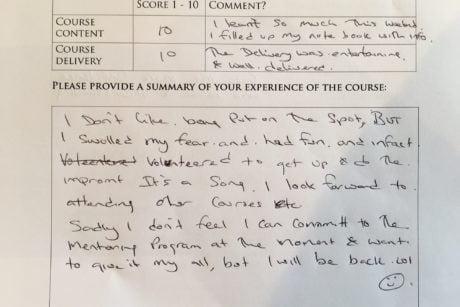 SCORE 1 - 10 COMMENT?
COURSE CONTENT 10 I learnt so much this weekend
I filled up my note book with info.
COURSE DELIVERY 10 The Delivery was entertaining
& well delivered.
PLEASE PROVIDE A SUMMARY OF YOUR EXPERIENCE OF THE COURSE:
I Don't like being Put on The Spot, BUT
I Swolled my fear and had fun and infact
Volenteered to get up & do the
impromt It's a Song. I look forward to
attending other Courses etc
Sadly I don't feel I can Committ to the
Mentoring Program at the moment & want
to give it my all, but I will be back. lol